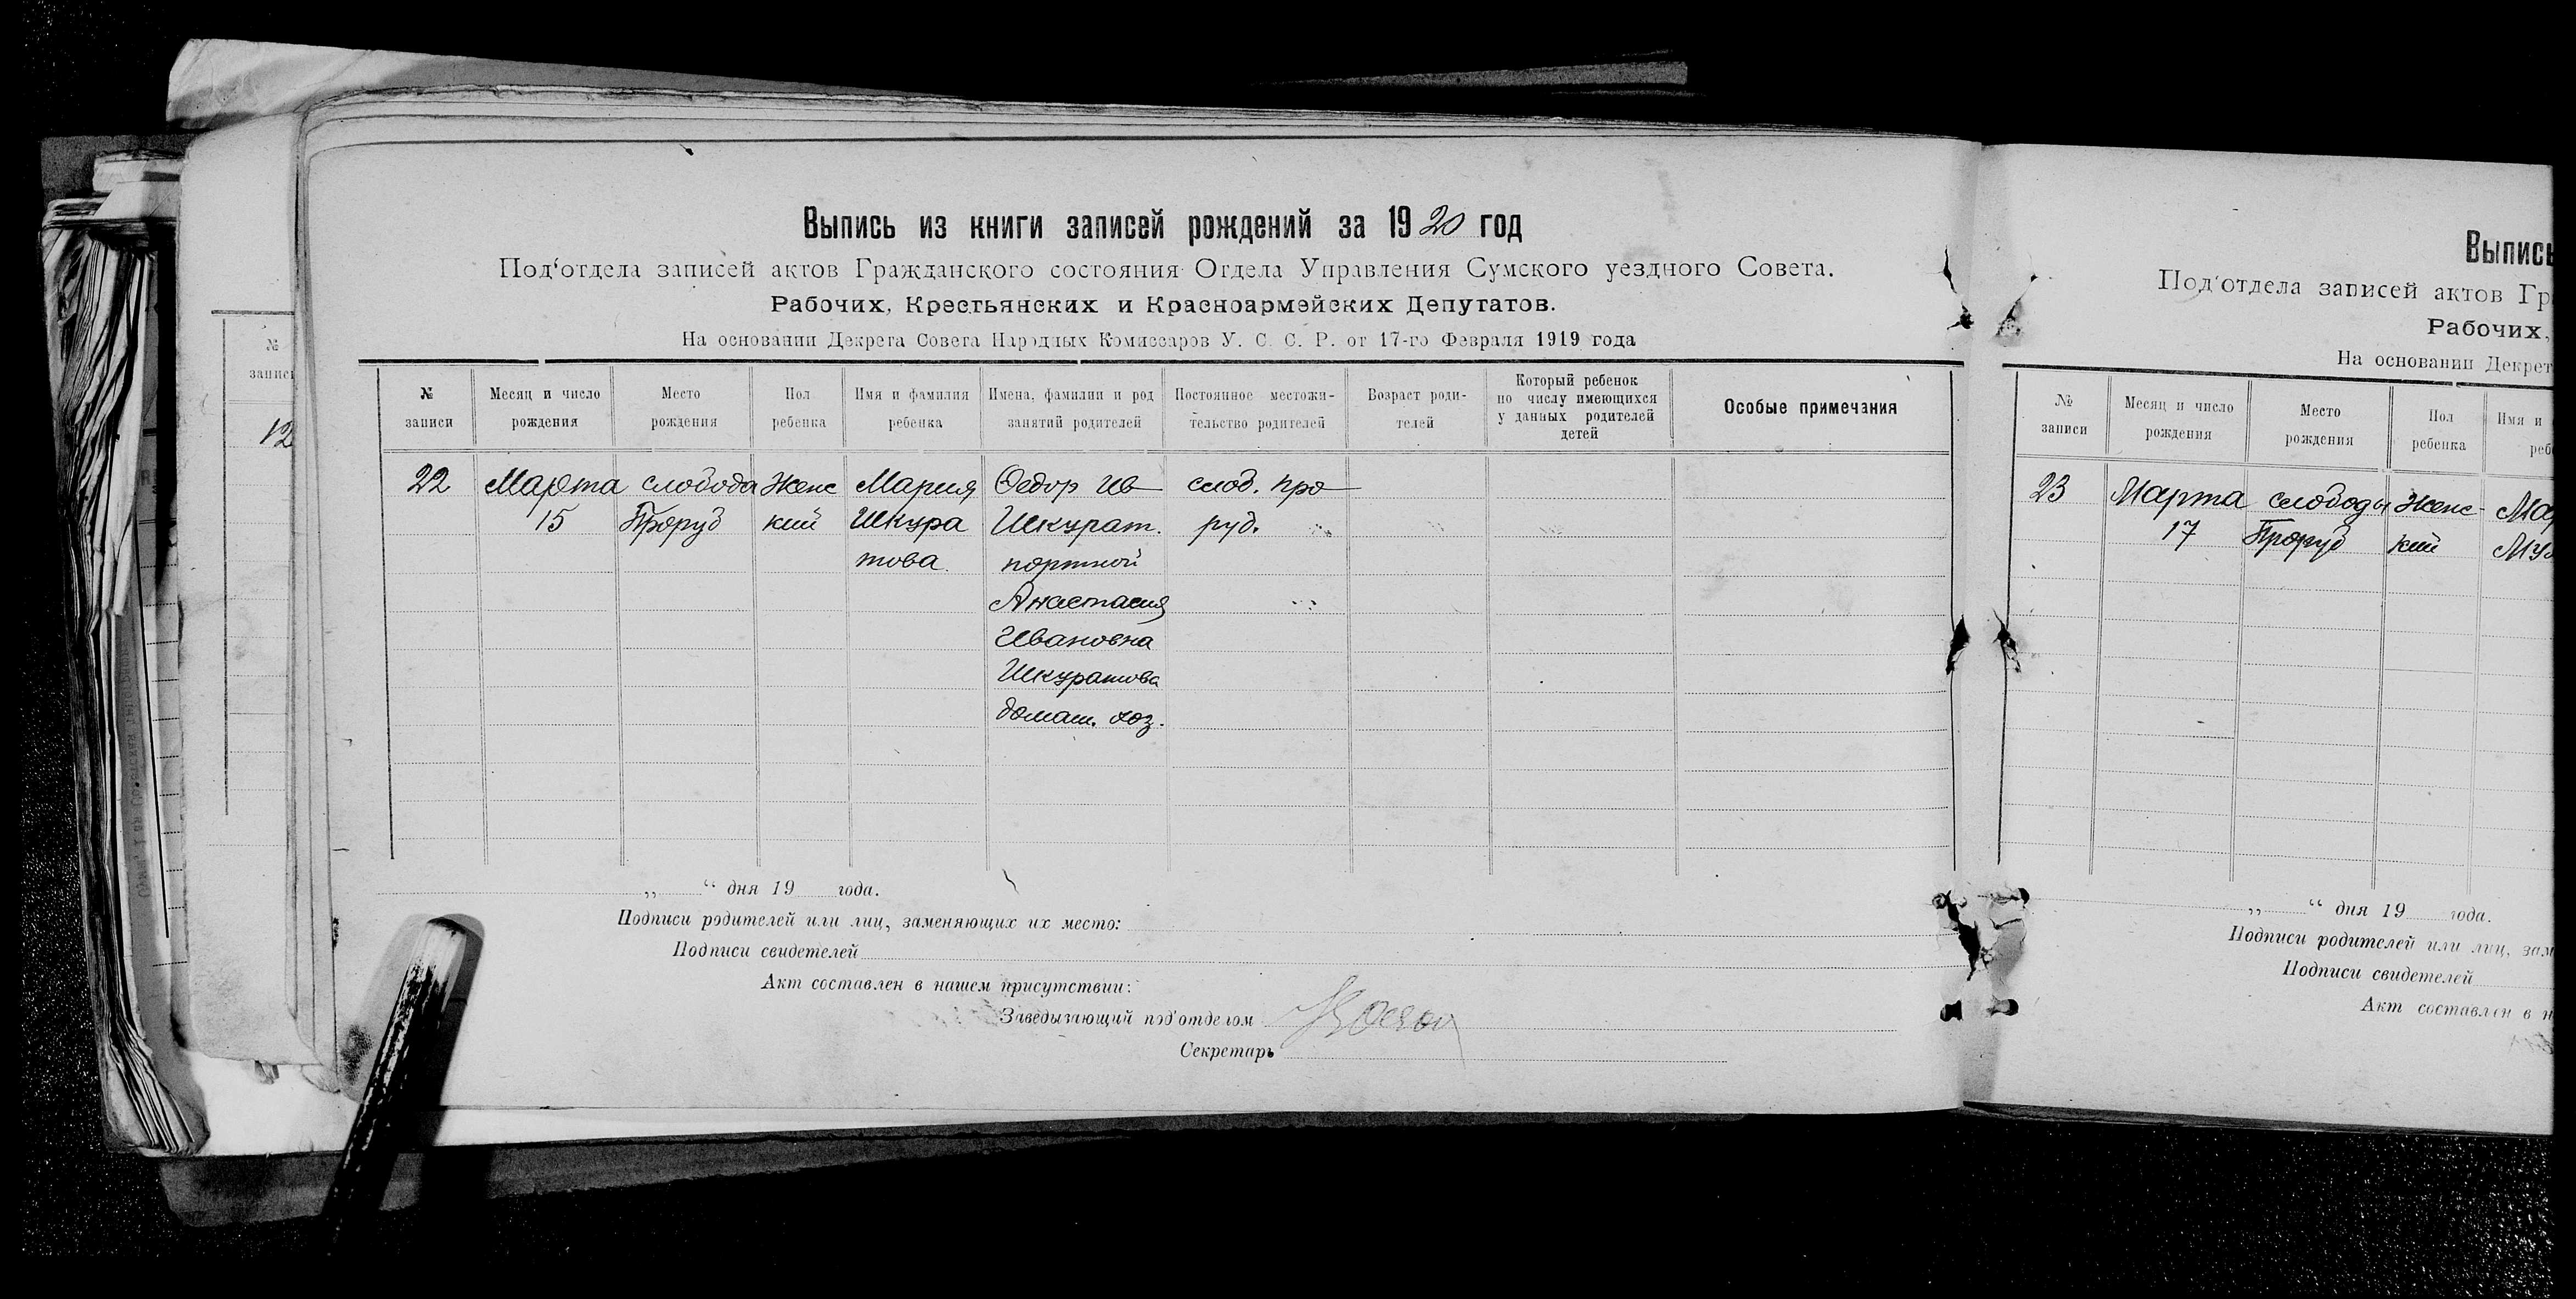 Выпись из книги записей рождений за 1920 год
Под'отдела записей актов Гражданского состояния Отдела Управления Сумского уездного Совета.
Рабочих, Крестьянских и Красноармейских Депутатов.
На основании Декрета Совета Народных Комиссаров У. С. С. Р. от 17-го Февраля 1919 года
№ записи
Месяц и число рождения
Место рождения
Пол ребенка
Имя и фамилия ребенка
Имена, фамилии и род занятий родителей
Постоянное местожительство родителей
Возраст родителей
Который ребенок по числу имеющихся у данных родителей детей
Особые примечания
22 Марта слобода Женс Мария Федор Ив слоб. Про
15 Проруб кий Шкура Шкурат. руб.
това. портной
Анастасия
Ивановна
Шкуратова
домаш. хоз.
„ “ дня 19 года.
Подписи родителей или лиц, заменяющих их место:
Подписи свидетелей
Акт составлен в нашем присутствии:
Заведывающий под'отделом
Секретарь
№
запис
12
Выпись
Под'отдела записей актов Гр
Рабочих,
На основании Декрет
№ записи
Месяц и число рождения
Место рождения
Пол ребенка
Имя и
реб
23 Марта слободы Женс-
17 Проруб кий
„ “ дня 19 года.
Подписи родителей или лиц, зам
Подписи свидетелей
Акт составлен в н